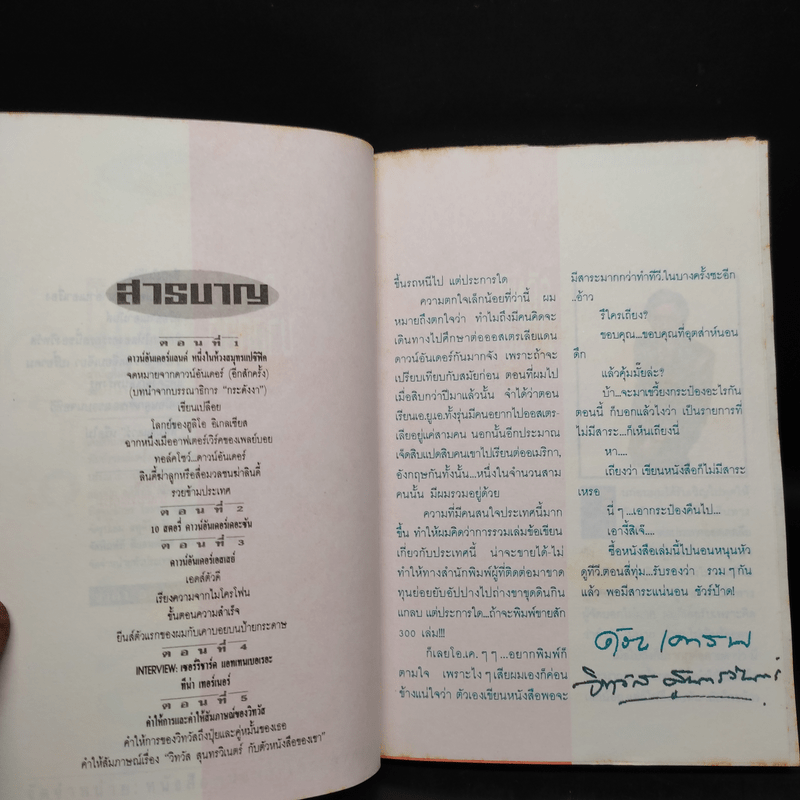 สารบาญ
ตอนที่ 1
ดาวน์อันเดอร์แลนด์ หนึ่งในห้วงสมุทรแปซิฟิค
จดหมายจากดาวน์อันเดอร์ (อีกสักครั้ง)
(บทนำจากบรรณาธิการ "กระดังงา")
เขียนเปลือย
โลกย์ของฮูลิโอ อิเกลเซียส
ฉากหนึ่งเมื่ออาฟเตอร์เวิร์คของเพลย์บอย
ทอล์คโชว์..ดาวน์อันเดอร์
ลินดี้ฆ่าลูกหรือสื่อมวลชนฆ่าลินดี้
รวยข้ามประเทศ
ตอนที่ 2
10 สตอรี่ ดาวน์อันเดอร์เดอะซัน
ตอนที่ 3
ดาวน์อันเดอร์เอสเสย์
เอดส์ตัวดี
เรียงความจากไมโครโฟน
ขั้นตอนความสำเร็จ
ยีนส์ตัวแรกของผมกับเคาบอยบนป้ายกระดาษ
ตอนที่ 4
INTERVIEW: เซอร์ริชาร์ด แอทเทนเบอเรอะ
ทีน่า เทอร์เนอร์
ตอนที่ 5
คำให้การและคำให้สัมภาษณ์ของวิทวัส
คำให้การของวิทวัสถึงปุ๋ยและคู่หมั้นของเธอ
คำให้สัมภาษณ์เรื่อง "วิทวัส สุนทรวิเนตร์ กับตัวหนังสือของเขา"
ขึ้นรถหนีไป แต่ประการใด
ความตกใจเล็กน้อยที่ว่านี้ ผม
หมายถึงตกใจว่า ทำไมถึงมีคนคิดจะ
เดินทางไปศึกษาต่อออสเตรเลียแดน
ดาวน์อันเดอร์กันมากจัง เพราะถ้าจะ
เปรียบเทียบกับสมัยก่อน ตอนที่ผมไป
เมื่อสิบกว่าปีมาแล้วนั้น จำได้ว่าตอน
เรียนเอ.ยู.เอ.ทั้งรุ่นมีคนอยากไปออสเตร-
เลียอยู่แค่สามคน นอกนั้นอีกประมาณ
เจ็ดสิบแปดสิบคนเขาไปเรียนต่ออเมริกา,
อังกฤษกันทั้งนั้น...หนึ่งในจำนวนสาม
คนนั้น มีผมรวมอยู่ด้วย
ความที่มีคนสนใจประเทศนี้มาก
ขึ้น ทำให้ผมคิดว่าการรวมเล่มข้อเขียน
เกี่ยวกับประเทศนี้ น่าจะขายได้-ไม่
ทำให้ทางสำนักพิมพ์ผู้ที่ติดต่อมาขาด
ทุนย่อยยับอัปปางไปถ่างขาขุดดินกิน
แกลบ แต่ประการใด...ถ้าจะพิมพ์ขายสัก
300 เล่ม!!!
ก็เลยโอ.เค.ๆๆ...อยากพิมพ์ก็
ตามใจ เพราะไงๆเสียผมเองก็ค่อน
ข้างแน่ใจว่า ตัวเองเขียนหนังสือพอจะ
มีสาระมากกว่าทำทีวี.ในบางครั้งซะอีก
..อ้าว
รึใครเถียง?
ขอบคุณ...ขอบคุณที่อุตส่าห์นอน
ดึก
แล้วคุ้มมั๊ยล่ะ?
บ๊า..จะมาเขวี้ยงกระป๋องอะไรกัน
ตอนนี้ ก็บอกแล้วไงว่า เป็นรายการที่
ไม่มีสาระ...ก็เห็นเถียงนี่
หา....
เถียงว่า เขียนหนังสือก็ไม่มีสาระ
เหรอ
นี่ ๆ...เอากระป๋องคืนไป...
เอางี้สิเจ๊....
ซื้อหนังสือเล่มนี้ไปนอนหนุนหัว
ดูทีวี.ตอนสี่ทุ่ม...รับรองว่า รวม ๆ กัน
แล้ว พอมีสาระแน่นอน ชัวร์ป้าด!
ด้วยเคารพ
วิทวัส สุนทรวิเนตร์